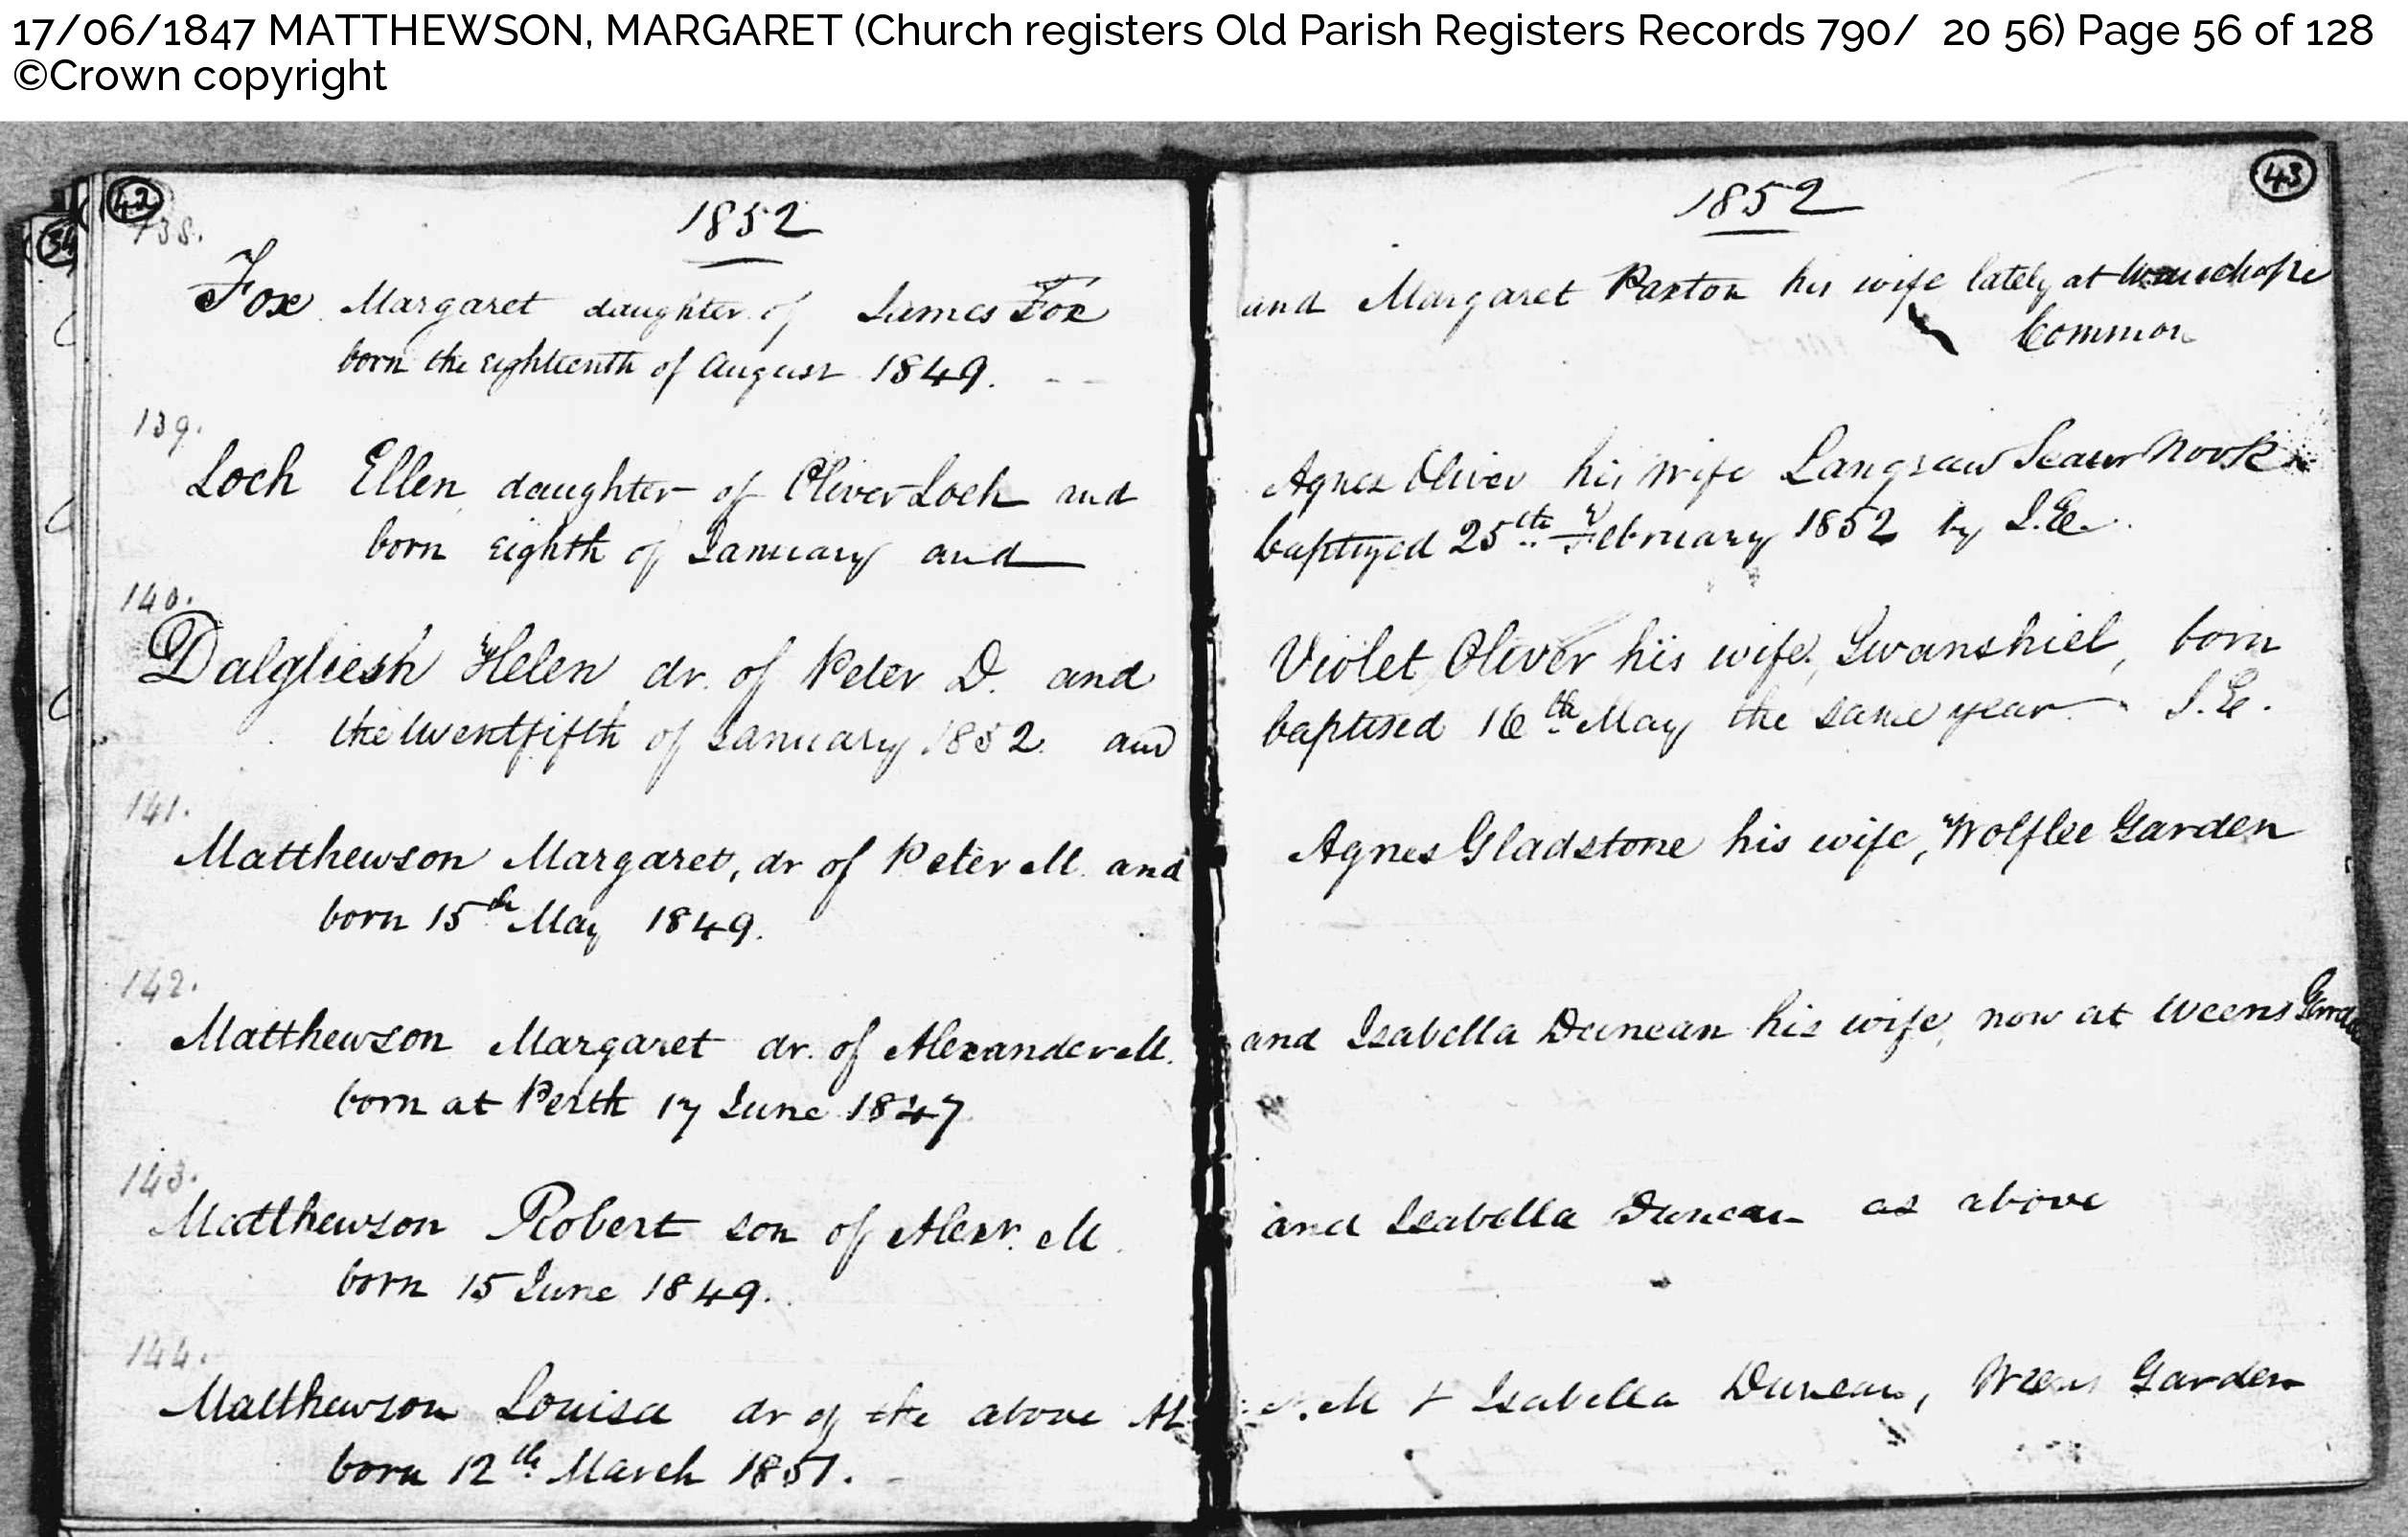 17/06/1847 MATTHEWSON, MARGARET (Church registers Old Parish Registers Records 790/ 20 56) Page 56 of 128
©Crown copyright
42
34
138.
1852
Fox Margaret daughter of James Fox
born the eighteenth of August 1849.
139.
Loch Ellen, daughter of Oliver Loch and
born eighth of January and
140.
Dalgliesh Helen dr. of Peter D. and
the twentfifth of January 1852. and
141.
Matthewson Margaret, dr of Peter M. and
born 15th May 1849.
142.
Matthewson Margaret dr. of Alexander M.
born at Perth 17 June 1847
143.
Matthewson Robert son of Alexr. M.
born 15 June 1849.
144.
Matthewson Louisa dr of the above
born 12th March 1851.
43
1852
and Margaret Paxton his wife lately at Wauchope
Common
Agnes Oliver his wife Langraw Scaur Nook
baptized 25th February 1852 by J.E.
Violet Oliver his wife, Swanshiel, born
baptised 16th May the same year J.E.
Agnes Gladstone his wife, Wolflee Garden
and Isabella Duncan his wife, now at Weens Garden
and Isabella Duncan as above
M + Isabella Duncan, Weens Garden